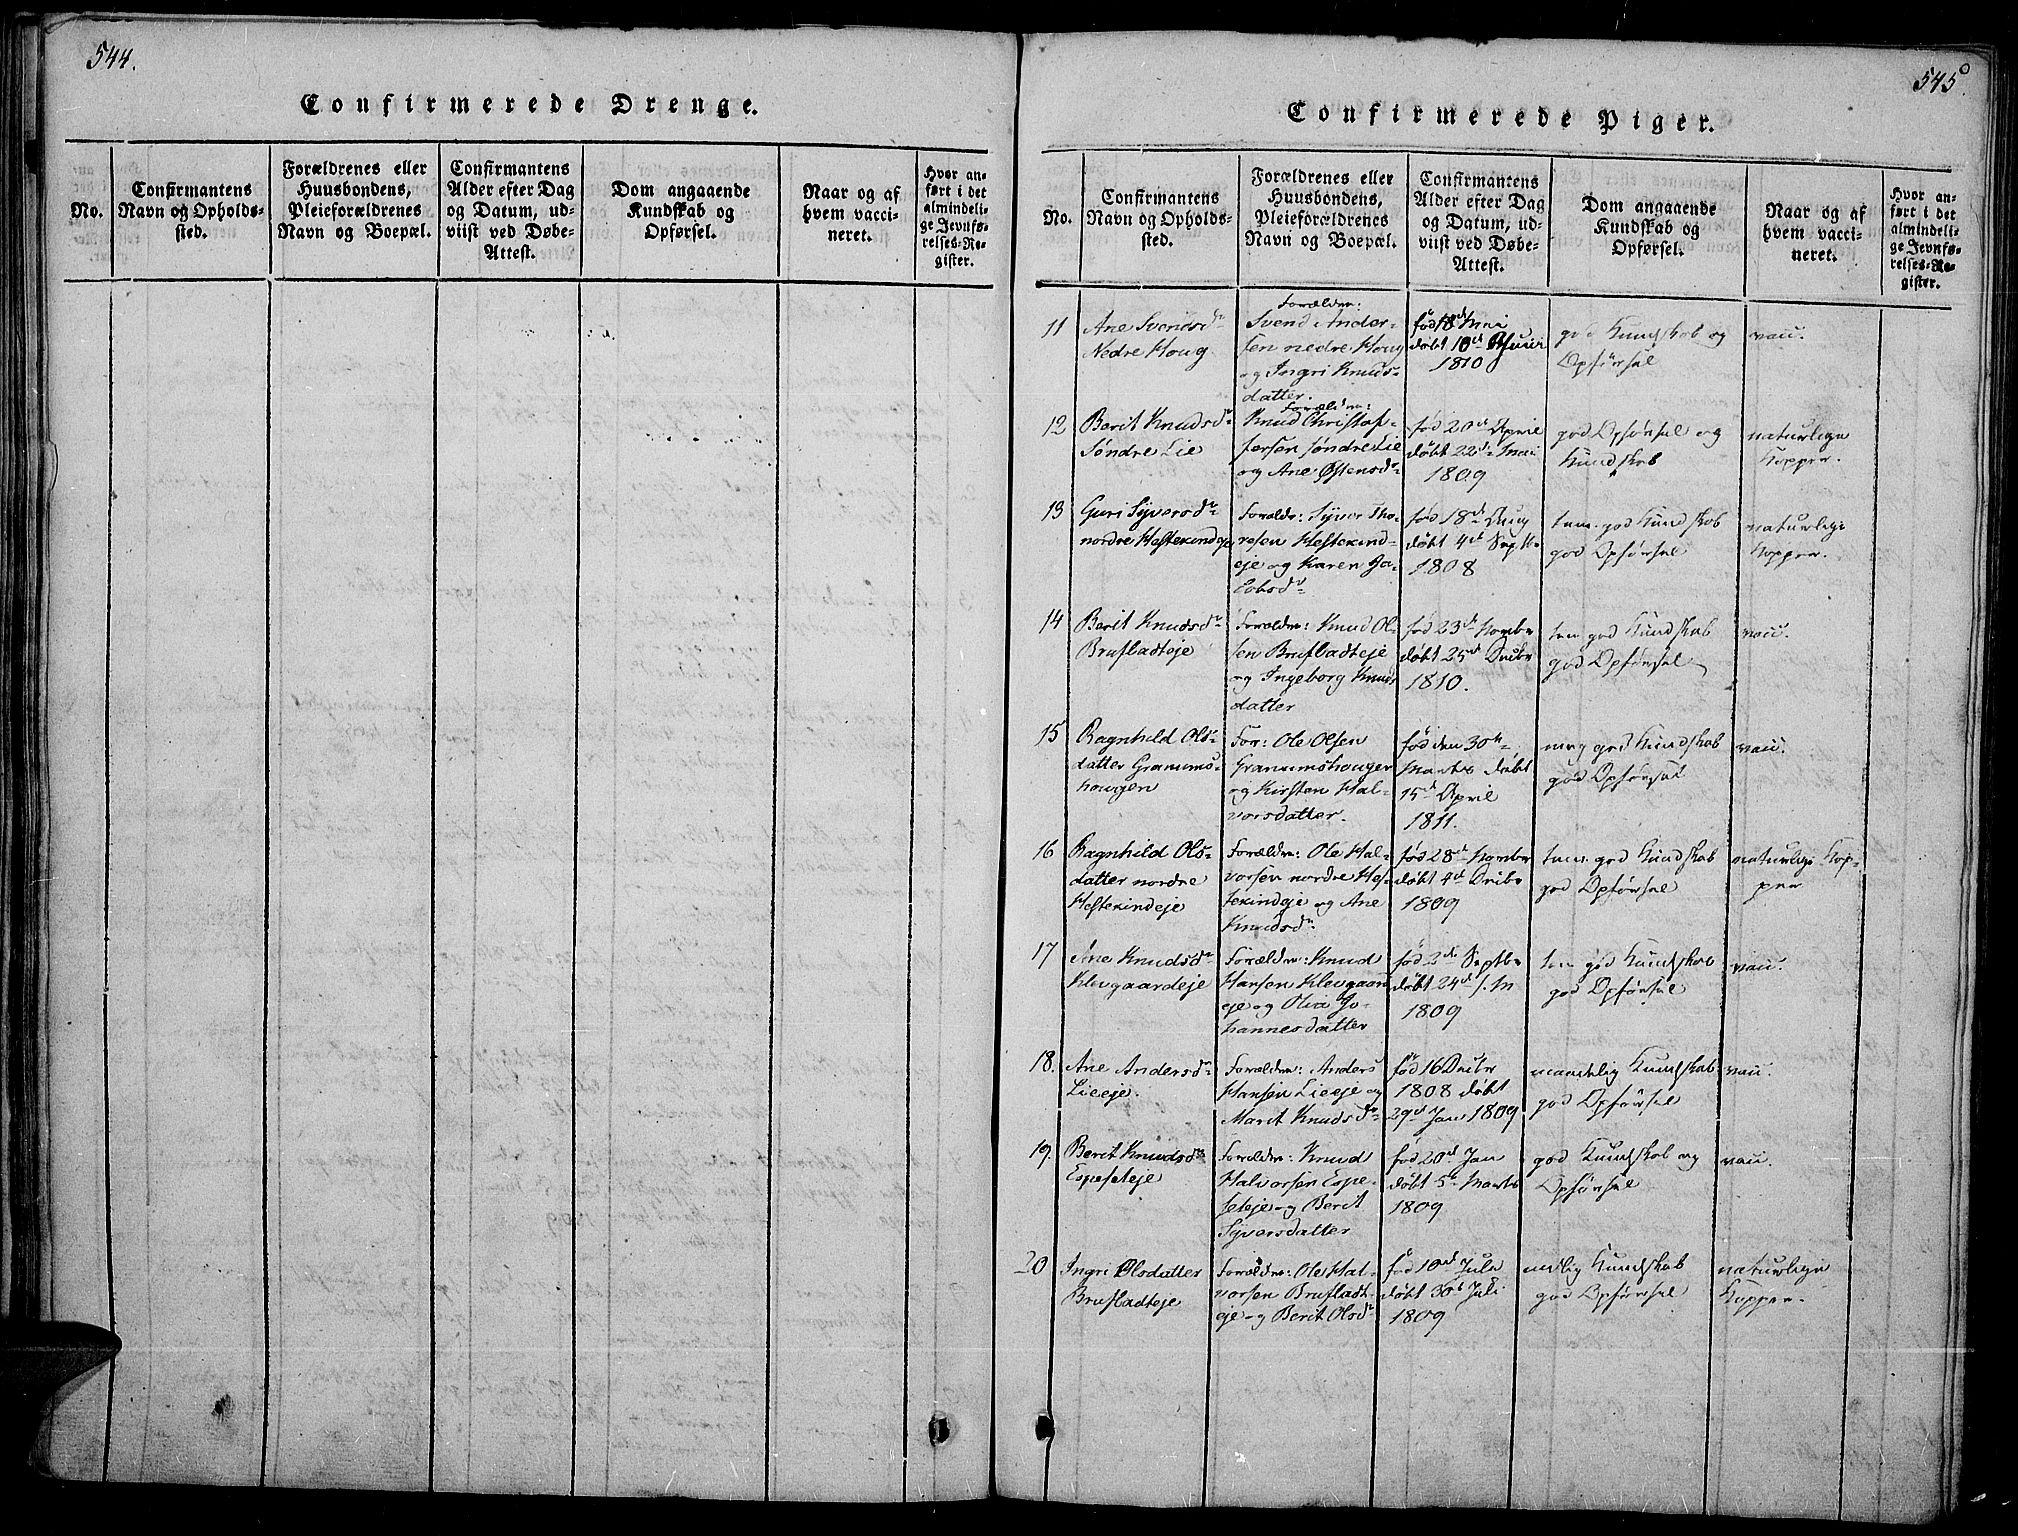 544.
Confirmerede Drenge.
No.
Confirmantens
Navn og Opholds-
sted.
Forældrenes eller
Huusbondens,
Pleieforældrenes
Navn og Boepæl.
Confirmantens
Alder efter Dag
og Datum, ud-
viist ved Døbe-
Attest.
Dom angaaende
Kundskab og
Opførsel.
Naar og af
hvem vacci-
neret.
Hvor an-
ført i det
almindeli-
ge Jevnfø-
relses-Re-
gister.
545
Confirmerede Piger.
No.
Confirmantens
Navn og Opholds-
sted.
Forældrenes eller
Huusbondens,
Pleieforældrenes
Navn og Boepæl.
Confirmantens
Alder efter Dag
og Datum, ud-
viist ved Døbe-
Attest.
Dom angaaende
Kundskab og
Opførsel.
Naar og af
hvem vacci-
neret.
Hvor an-
ført i det
almindeli-
ge Jevnfø-
relses-Re-
gister.
11
Ane Svendsdr
Nedre Houg
Forældre:
Svend Ander-
sen nedre Houg
og Ingri Knuds-
datter.
fød 18de Mai
døbt 10de Juni
1810
god Kundskab og
Opførsel
vacc.
12
Berit Knudsdr
Søndre Lie
Forældre:
Knud Christof-
fersen søndre Lie
og Ane Østensdr
fød 20de April
døbt 22de Mai
1809
god Opførsel og
Kundskab
naturlige
Kopper.
13
Guri Syversdr
nordre Hestekindeje
Forældr: Syver Tho-
resen Hestekind-
eje og Karen Ja-
cobsdr
fød 18de Aug
døbt 4de Septb
1808
tem. god Kundskab
god Opførsel
naturlige
Kopper.
14
Berit Knudsdr
Brufladteje
Forældre: Knud Ol-
sen Brufladteje
og Ingeborg Knuds
datter
fød 23de Novmbr
døbt 25de Decbr
1810.
tem god Kundskab
god Opførsel
vacc.
15
Ragnhild Ols-
datter Granums-
hougen
For: Ole Olsen
Granumshougen
og Kirsten Hal-
vorsdatter.
fød den 30te
Marts døbt
15de April
1811.
meg god Kundskab
god Opførsel
vacc.
16
Ragnhild Ols-
datter nordre
Hestekindeje
Forældre: Ole Hal-
vorsen nordre Hes-
tekindeje og Ane
Knudsdr
fød 28de Novmbr
døbt 4de Decbr
1809
tem. god Kundskab
god Opførsel
naturlige Kop-
per
17
Ane Knudsdr
Klevgaardeje
Forældre: Knud
Hansen Klevgaard
eje og Olia Jo-
hannesdatter
fød 2de Septbr
døbt 24de s. M
1809
tem god Kundskab
god Opførsel
vacc.
18.
Ane Andersdr
Lieeje.
Forældre: Anders
Hansen Lieeje og
Marit Knudsdr
fød 16 Decbr
1808 døbt
29de Jan 1809
maadelig Kundskab
god Opførsel
vacc.
19
Berit Knudsdr
Espeseteje
Forældre: Knud
Halvorsen Espe-
seteje og Berit
Syversdatter
fød 20de Jan
døbt 5te Marts
1809
god Kundskab og
Opførsel
vacc.
20
Ingri Olsdatter
Brufladteje
Forældre: Ole Hal-
vorsen Brufladt-
eje og Berit Olsdr
fød 10de Juli
døbt 30de Juli
1809
mdlig Kundskab
god Opførsel
naturlige
Kopper.